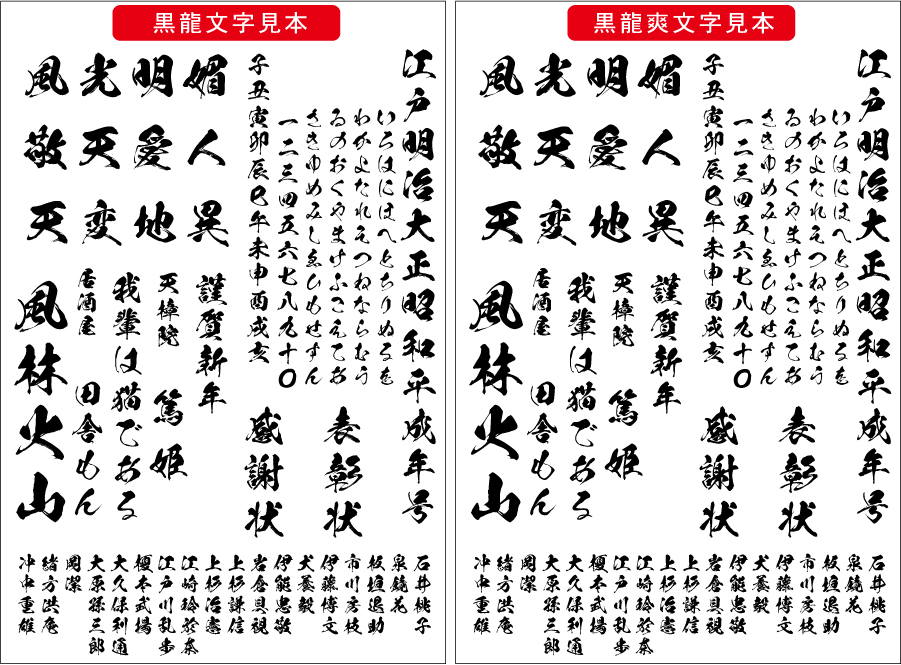 黒龍文字見本
江戸明治大正昭和平成年号
いろはにほへとちりぬるを
わかよたれそつねならむう
ゐのおくやまけふこえてあ
さきゆめみしゑひもせすん
一二三四五六七八九十〇
子丑寅卯辰巳午未申酉戌亥
表彰状
感謝状
媚人異
明愛地
光天変
風敬天
謹賀新年
天樟院 篤姫
我輩は猫である
居酒屋 田舎もん
風林火山
石井桃子
泉鏡花
板垣退助
市川房枝
伊藤博文
犬養毅
伊能忠敬
岩倉具視
上杉謙信
上杉治憲
江崎玲於奈
江戸川乱歩
榎本武揚
大久保利通
大原孫三郎
岡潔
緒方洪庵
冲中重雄
黒龍爽文字見本
江戸明治大正昭和平成年号
いろはにほへとちりぬるを
わかよたれそつねならむう
ゐのおくやまけふこえてあ
さきゆめみしゑひもせすん
一二三四五六七八九十〇
子丑寅卯辰巳午未申酉戌亥
表彰状
感謝状
媚人異
明愛地
光天変
風敬天
謹賀新年
天樟院 篤姫
我輩は猫である
居酒屋 田舎もん
風林火山
石井桃子
泉鏡花
板垣退助
市川房枝
伊藤博文
犬養毅
伊能忠敬
岩倉具視
上杉謙信
上杉治憲
江崎玲於奈
江戸川乱歩
榎本武揚
大久保利通
大原孫三郎
岡潔
緒方洪庵
冲中重雄